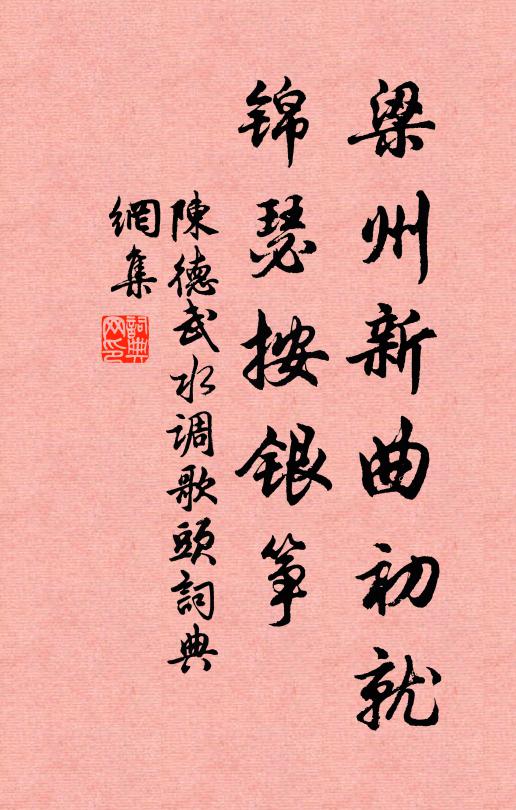 梁州新曲初就
锦瑟按银筝
陳德武水调歌頭詞典
網集
詞典
网印